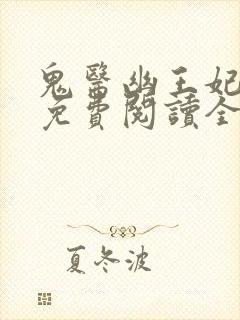 鬼醫幽王妃
免費閱讀全
夏冬波